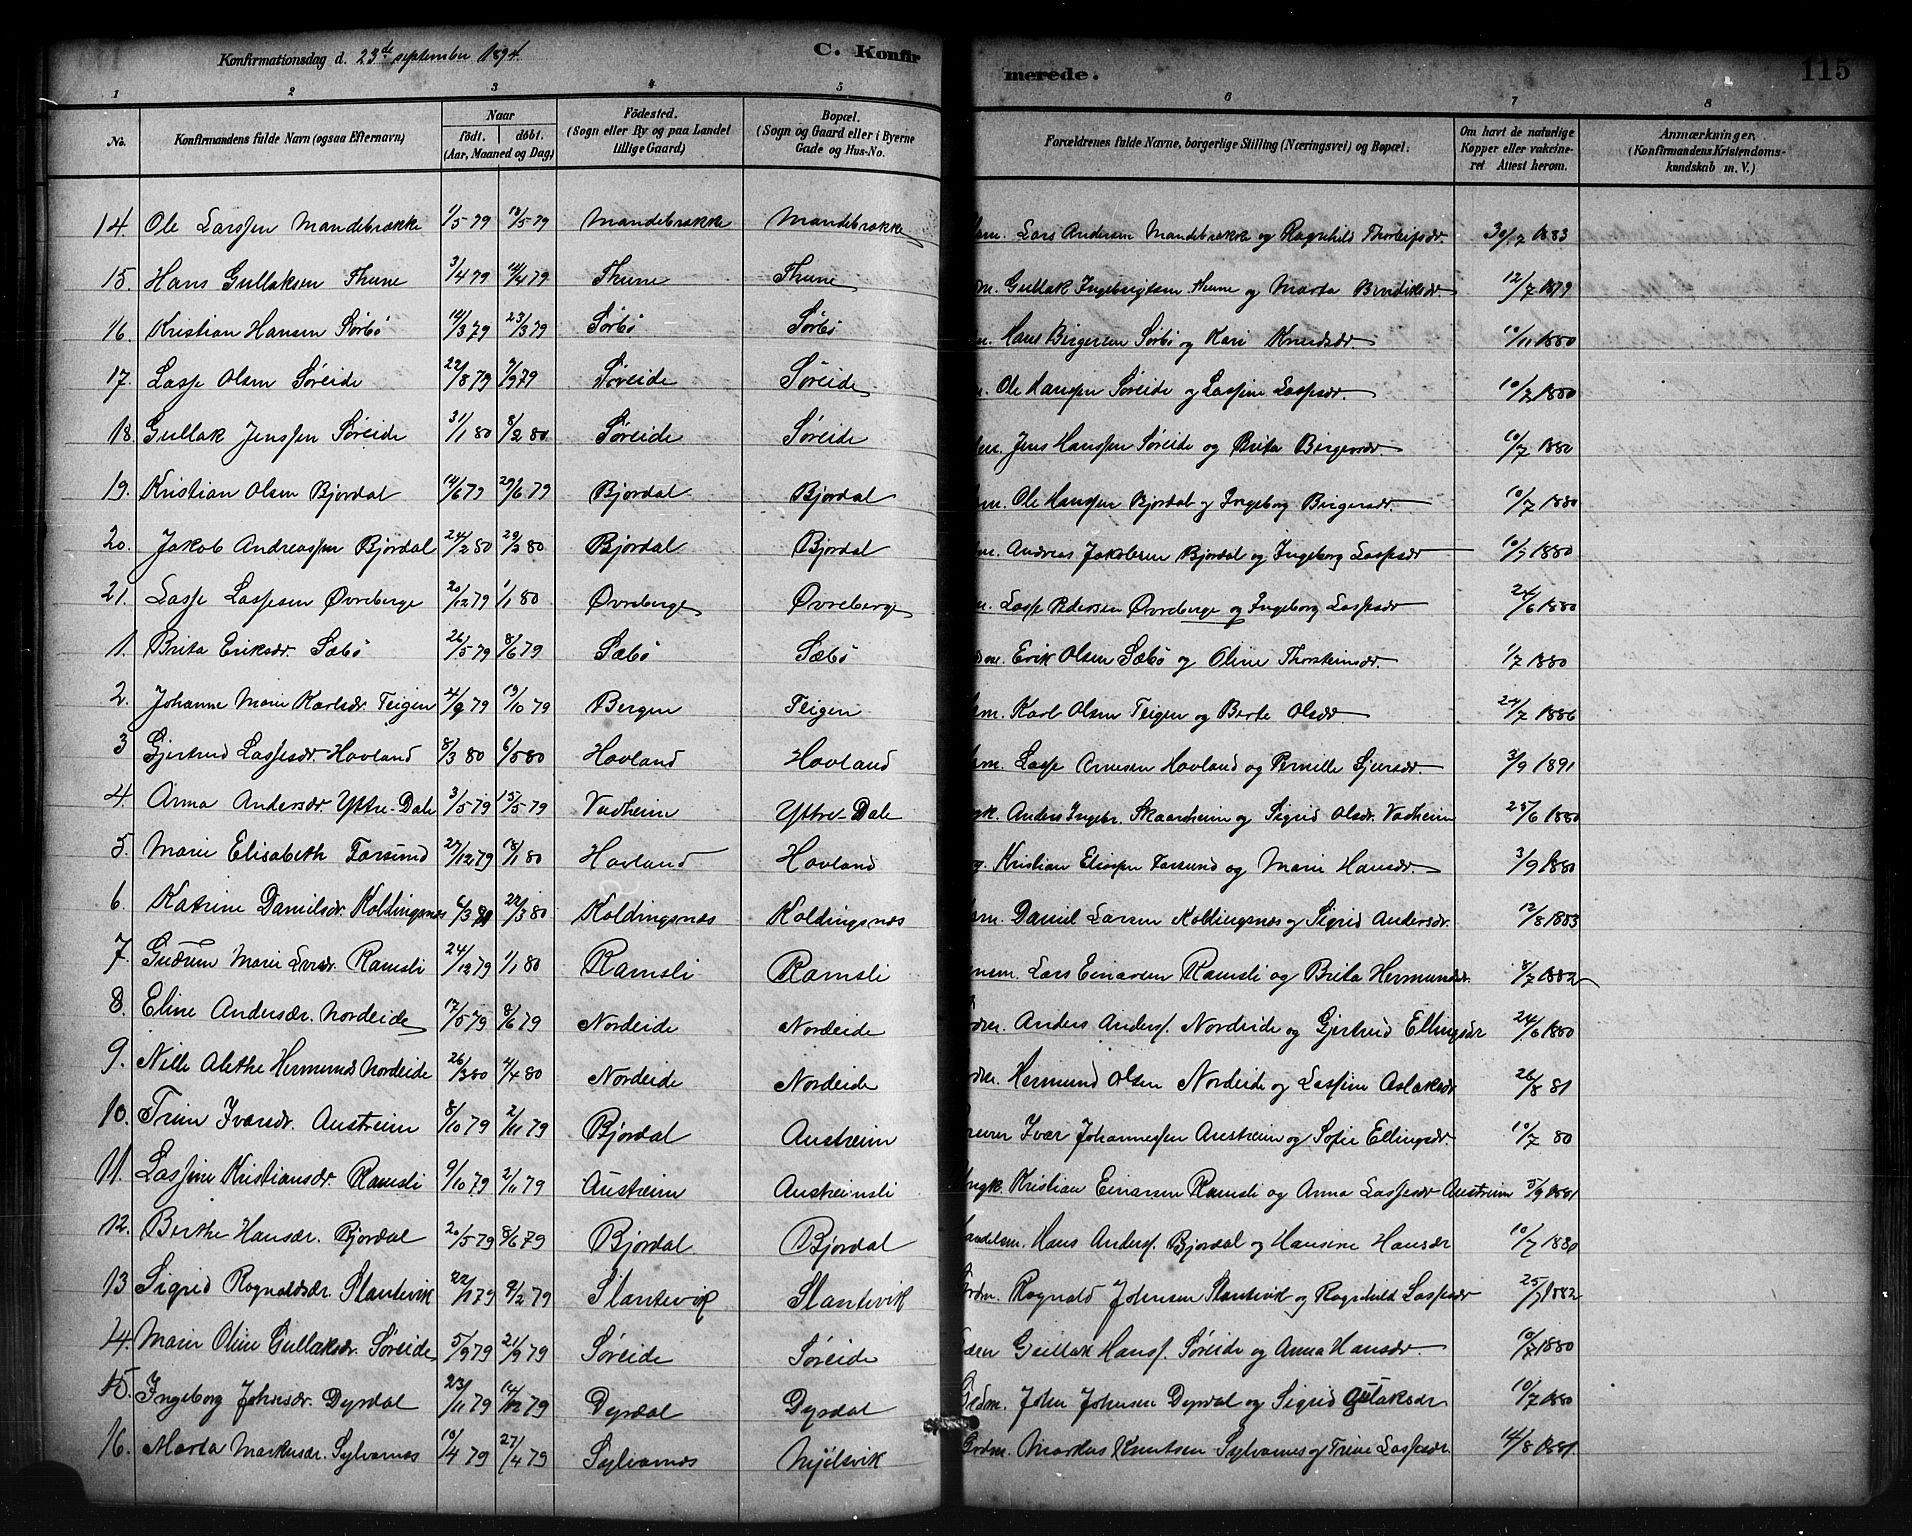 Konfirmationsdag d. 23de september 1894. C. Konfirmerede. 115
1 2 3 4 5 6 7 8
No. Konfirmandens fulde Navn (ogsaa Efternavn) Naar født. døbt. (Aar, Maaned og Dag) Fødested. (Sogn eller By og paa Landet tillige Gaard) Bopæl. (Sogn og Gaard eller i Byerne Gade og Hus-No. Forældrenes fulde Navne, borgerlige Stilling (Næringsvei) og Bopæl. Om havt de naturlige Kopper eller vaccineret Attest herom. Anmærkninger. (Konfirmandens Kristendomskundskab m. V.)
14. Ole Larssen Mandebrække 1/5 79 18/5 79 Mandebrække Mandebrække Lars Andersen Mandebrække og Ragnhild Thorleifsdr. 30/7 1883
15. Hans Gullaksen Thune 3/4 79 14/4 79 Thune Thune Gullak Ingebrigtsen Thune og Marta Bendiksdr. 12/7 1879
16. Kristian Hansen Sørbø 14/3 79 23/3 79 Sørbø Sørbø Hans Birgersen Sørbø og Kari Knudsdr. 10/11 1880
17. Lasse Olsen Søreide 22/8 79 7/9 79 Søreide Søreide Ole Hanssen Søreide og Lassine Lassesdr. 10/7 1880
18. Gullak Jenssen Søreide 31/1 80 8/2 80 Søreide Søreide Jens Hanssen Søreide og Brita Birgersdr. 10/7 1880
19. Kristian Olsen Bjordal 14/6 79 29/6 79 Bjordal Bjordal Ole Hanssen Bjordal og Ingeborg Birgersdr. 10/7 1880
20. Jakob Andreassen Bjordal 24/2 80 29/2 80 Bjordal Bjordal Andreas Jakobsen Bjordal og Ingeborg Lassesdr 10/7 1880
21. Lasse Lassesen Øvreberge 20/12 79 1/1 80 Øvreberge Øvreberge Lasse Pedersen Øvreberge og Ingeborg Lassesdr 24/6 1880
1. Brita Eriksdr. Sæbø 26/5 79 8/6 79 Sæbø Sæbø Erik Olsen Sæbø og Oline Thorsteinsdr. 1/7 1880
2. Johanne Marie Karlsdr. Teigen 4/9 79 19/10 79 Bergen Teigen Karl Olsen Teigen og Berte Olsdr 24/7 1886
3 Gjertrud Lassesdr. Hovland 8/3 80 6/5 80 Hovland Hovland Lasse Arnesen Hovland og Pernille Sjursdr. 3/9 1891
4. Anna Andersdr. Yttre-Dale 3/5 79 15/5 79 Vadheim Yttre-Dale Anders Ingebr. Skaarheim og Sigrid Olsdr. Vadheim 25/6 1880
5. Marie Elisabeth Farsund 27/12 79 18/1 80 Hovland Hovland Kristian Eliassen Farsund og Marie Hansdr. 3/9 1880
6. Katrine Danielsdr. Koldingsnæs 6/3 80 22/3 80 Koldingsnæs Koldingsnæs Daniel Larsen Koldingsnæs og Sigrid Andersdr. 12/8 1883
7. Gudrun Marie Larsdr. Ramsli 24/12 79 1/1 80 Ramsli Ramsli Lars Einarsen Ramsli og Brita Hermundsdr. 8/7 1882
8. Eline Andersdr. Nordeide 17/5 79 8/6 79 Nordeide Nordeide Anders Anders. Nordeide og Gjertrud Ellingsdr 24/6 1880
9. Nille Alethe Hermunds Nordeide 26/3 80 4/4 80 Nordeide Nordeide Hermund Olsen Nordeide og Lassine Aslaksdr 26/8 81
10. Trine Ivarsdr. Austreim 8/10 79 2/11 79 Bjordal Austreim Ivar Johannessen Austreim og Sofie Ellingsdr. 10/7 80
11. Lassine Kristiansdr. Ramsli 9/10 79 2/11 79 Austreim Austreimsli Kristian Einarsen Ramsli og Anna Lassesdr Austreim 5/9 1881
12. Berthe Hansdr. Bjordal 20/5 79 8/6 79 Bjordal Bjordal Hans Anders. Bjordal og Hansine Hansdr 10/7 1880
13 Sigrid Ragnaldsdr. Slantevik 22/1 79 9/2 79 Slantevik Slantevik Grdm. Ragnald Johnsen Slantevik og Ragnhild Lassesdr 25/7 1882
14. Marie Oline Gullaksdr. Søreide 5/9 79 21/9 79 Søreide Søreide Gullak Hans. Søreide og Anna Hansdr. 10/7 1880
15. Ingeborg Johnsdr. Dyrdal 23/11 79 14/12 79 Dyrdal Dyrdal Grdm. John Johnsen Dyrdal og Sigrid Gulaksdr 10/7 1880
16. Marta Markusdr. Sylvarnæs 10/4 79 27/4 79 Sylvarnæs Mjølsvik Grdm. Markus Knutsen Sylvarnes og Trine Lassesdr 14/8 1881.